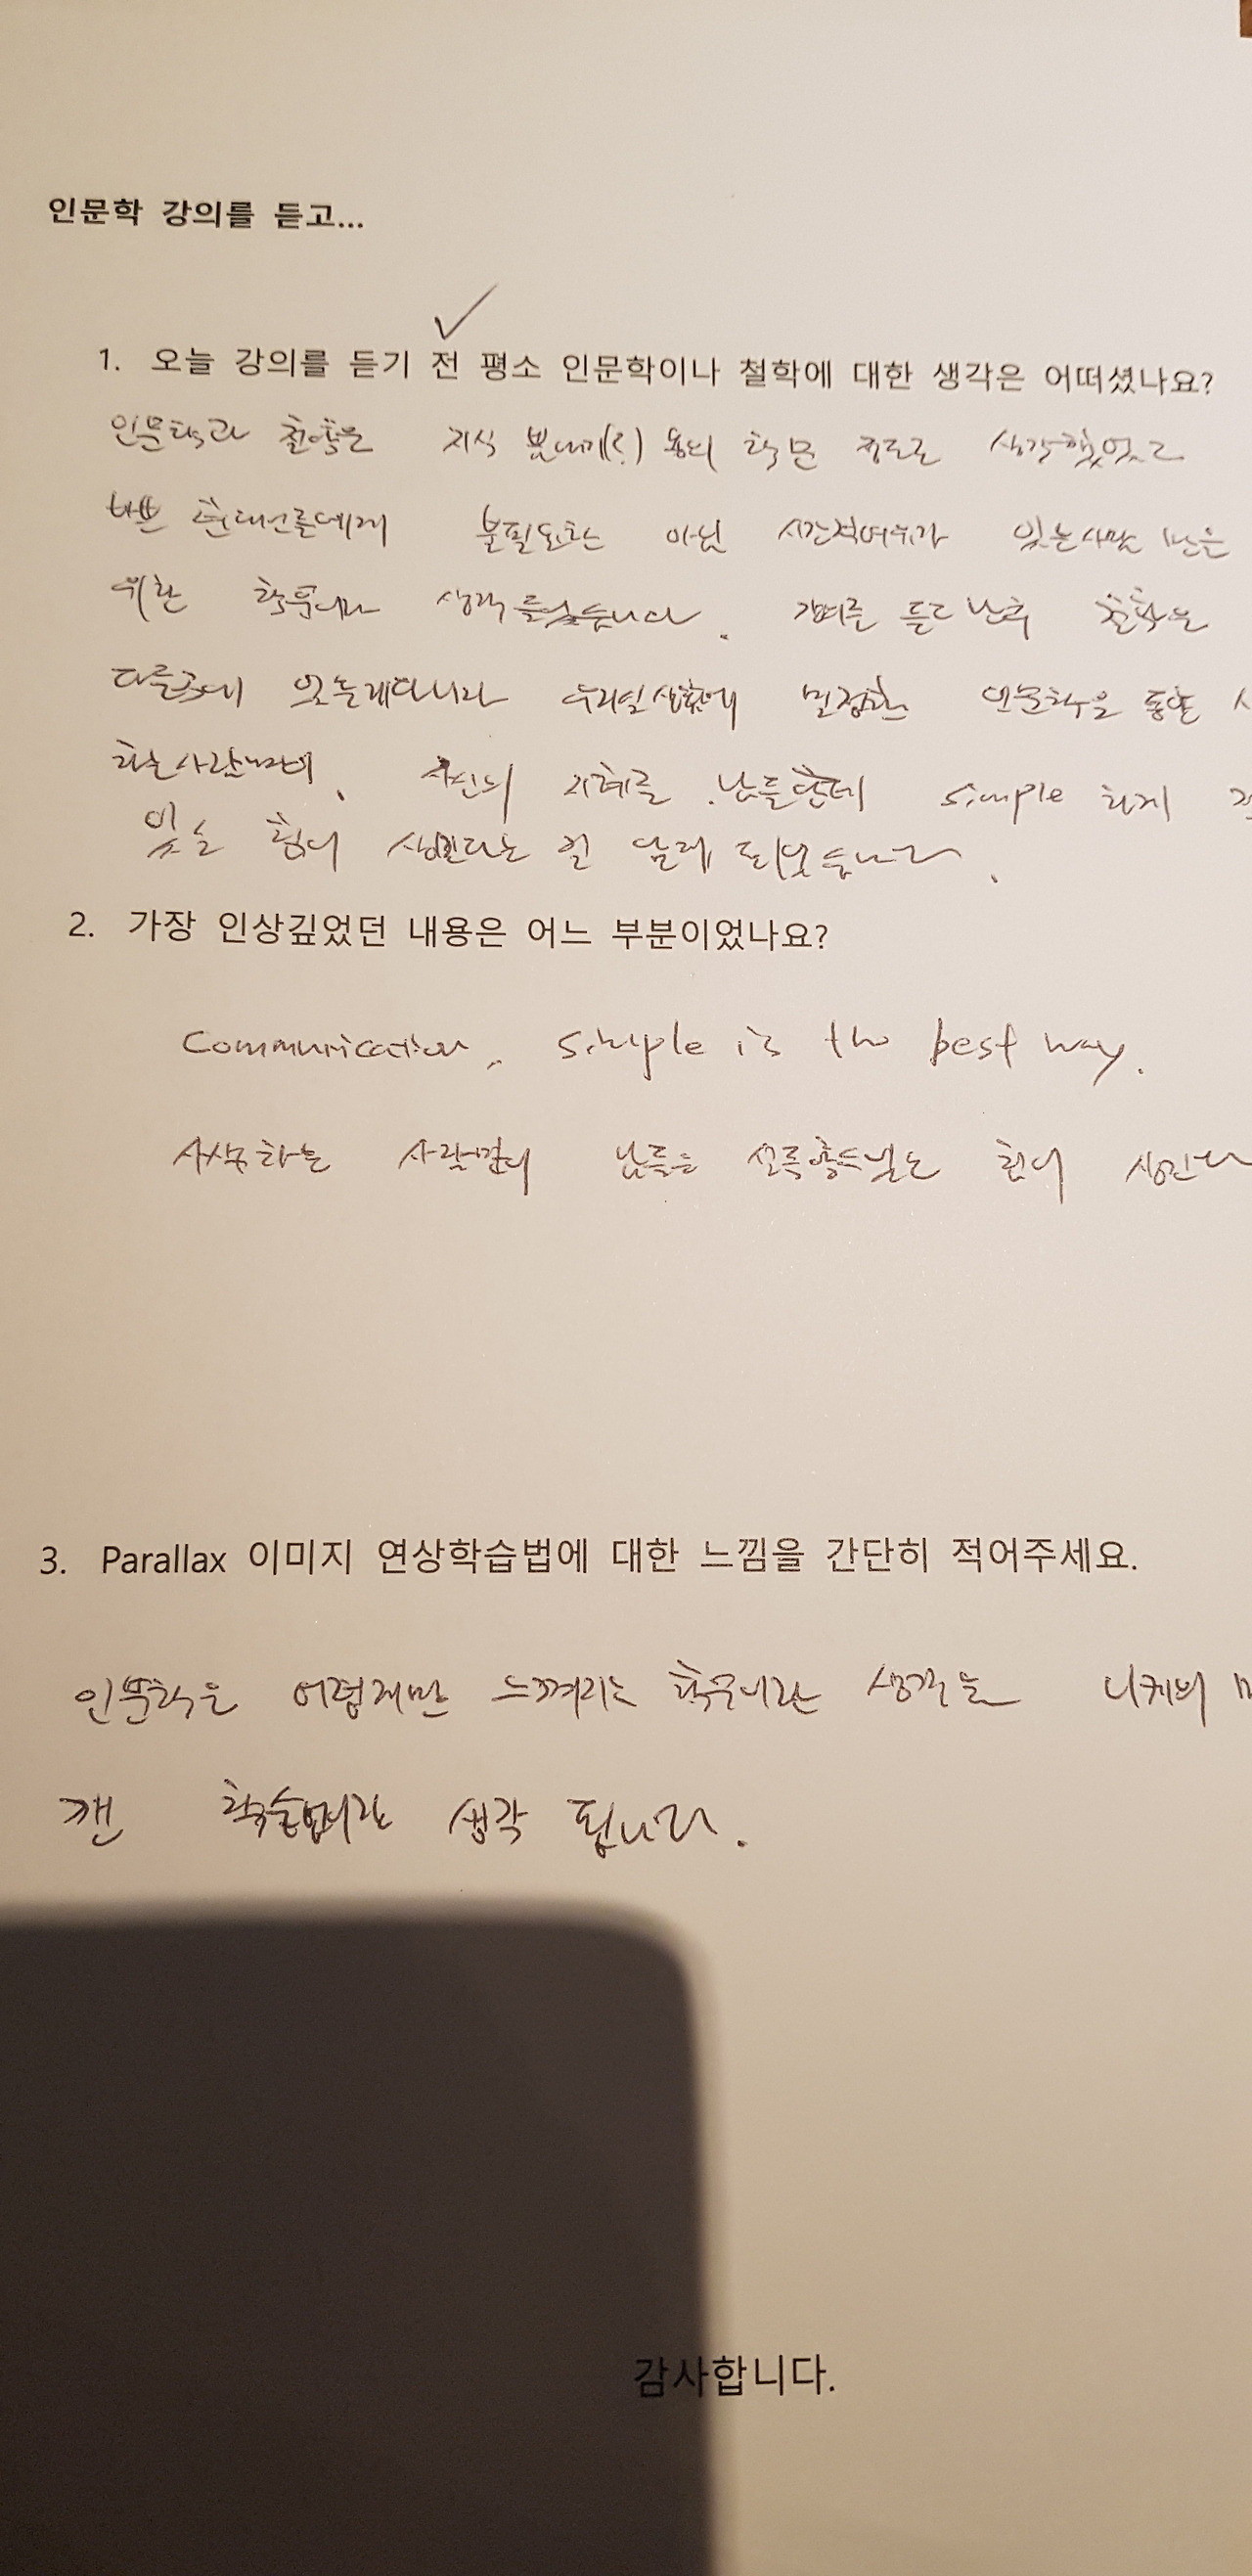 인문학 강의를 듣고...
1. 오늘 강의를 듣기 전 평소 인문학이나 철학에 대한 생각은 어떠셨나요?
인문학과 철학은 지식 뽐내기(?) 용의 학문 정도로 생각했었고
바쁜 현대인들에게 불필요한 아닌 시간적여유가 있는사람 만은
위한 학문이라 생각 들었습니다. 강의를 듣고 난후 철학은
다른곳에 있는게아니라 우리실생활에 밀접한 인문학을 통한
하는사람만이, 자신의 지혜를 남들한테 simple 하게
있는 힘이 생긴다는 걸 알게 되었습니다.
2. 가장 인상깊었던 내용은 어느 부분이었나요?
Communication, simple is the best way.
사색하는 사람만이 남들을 힘이 생긴다
3. Parallax 이미지 연상학습법에 대한 느낌을 간단히 적어주세요.
인문학은 어렵게만 느껴지는 학문이라는 생각을 니케의
깬 학습법이라 생각 됩니다.
감사합니다.